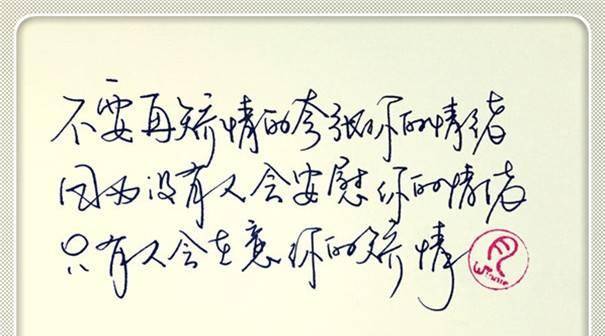 不要再矫情的夸张你的情绪
因为没有人会安慰你的情绪
只有人会在意你的矫情